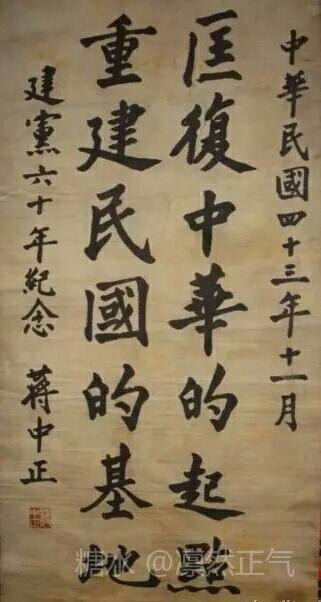 中華民國四十三年十一月
匡復中華的起點
重建民國的基地
建黨六十年紀念 蔣中正
糖水 @凛然正气